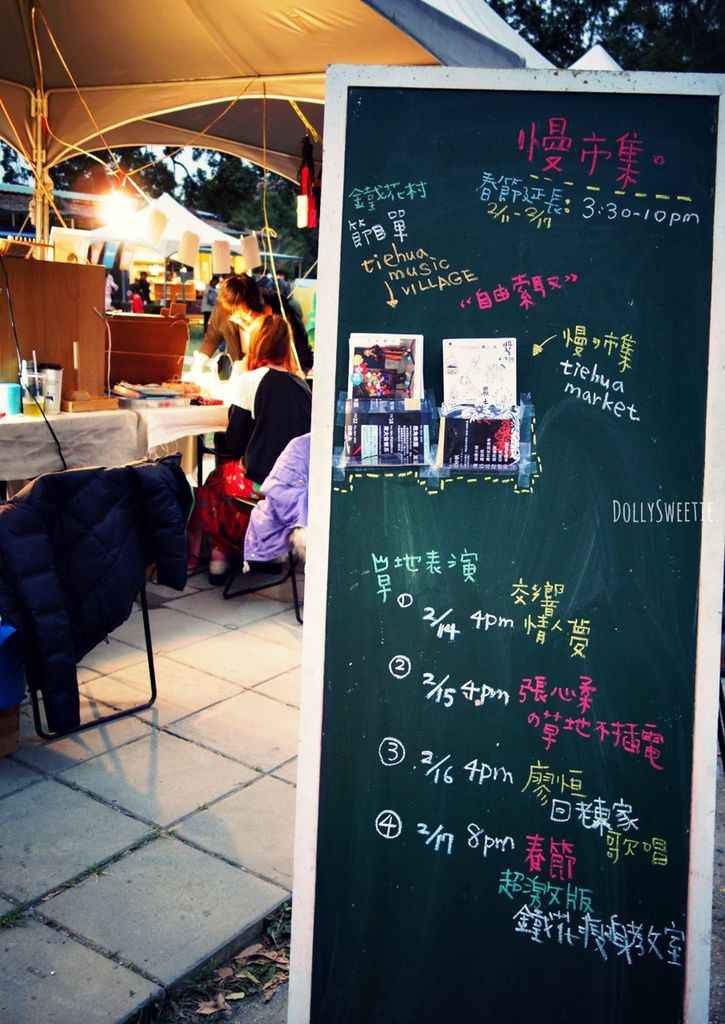 慢市集。
春節延長: 3:30-10pm
2/11-3/17
鐵花村
節目單
tiehua
music
VILLAGE
"自由索取"
慢市集
tiehua
market
DOLLYSWEETIE
草地表演
① 2/14 4pm 交響
情人夢
② 2/15 4pm 張心柔
の草地不插電
③ 2/16 4pm 廖恒
回老家
歌唱
④ 2/17 8pm 春節
超激版
鐵花瘦身教室